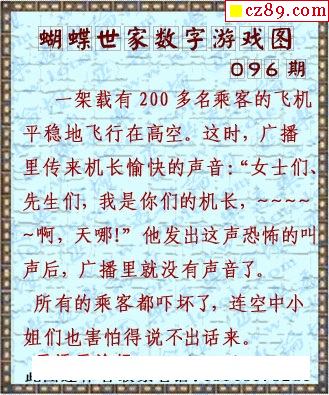 cz89.com
蝴蝶世家数字游戏图
096期
一架载有200多名乘客的飞机
平稳地飞行在高空。这时，广播
里传来机长愉快的声音:“女士们、
先生们，我是你们的机长，~~~~
~啊，天哪!”他发出这声恐怖的叫
声后，广播里就没有声音了。
所有的乘客都吓坏了，连空中小
姐们也害怕得说不出话来。